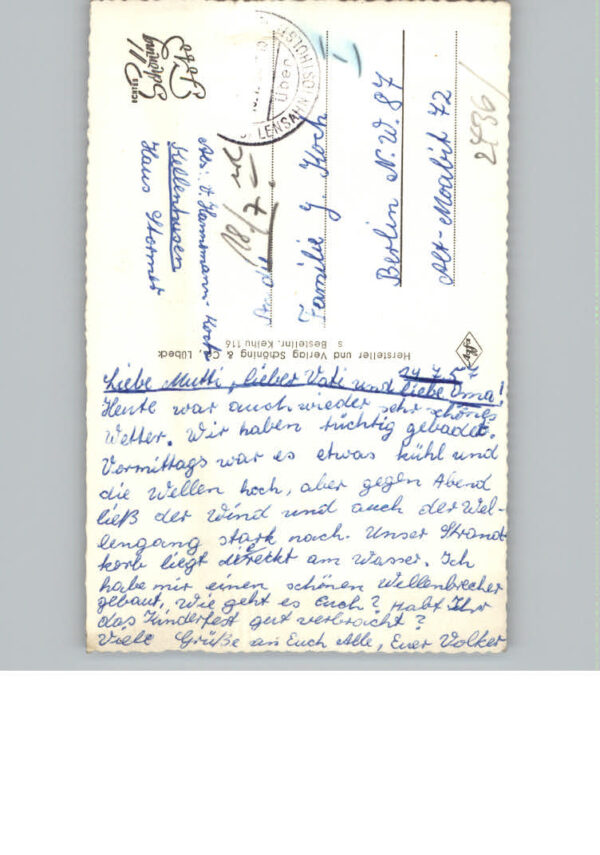 Liebe Mutti, lieber Vati und liebe Oma!
Heute war auch wieder sehr schönes
Wetter. Wir haben tüchtig gebadet.
Vormittags war es etwas kühl und
die Wellen hoch, aber gegen Abend
ließ der Wind und auch der Wel-
lengang stark nach. Unser Strand
korb liegt direckt am Wasser. Ich
habe mir einen schönen Wellenbrecher
gebaut, Wie geht es Euch? Habt Ihr
das Kinderfest gut verbracht?
Viele Grüße an Euch Alle, Euer Volker
Abs: V. Hannemann-Koch
Kellenhusen
Haus Stormer
An die
Familie G. Koch
Berlin N.W. 87
Alt-Moabit 72
2436/
18/7.
über
LENSAHN (HOLST
Schöning
Foto
Hersteller und Verlag Schöning & Co., Lübeck
s Bestellnr. Kelhu 116
Agfa